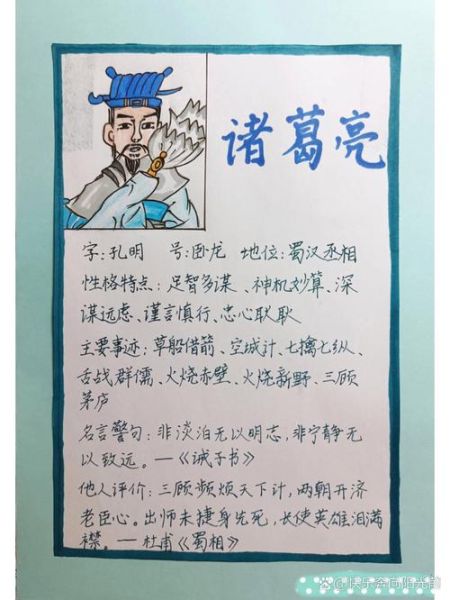 诸葛亮
字:孔明 号:卧龙 地位:蜀汉丞相
性格特点:足智多谋、神机妙算、深
谋远虑、谨言慎行、忠心耿耿
主要事迹:草船借箭、空城计、七擒七纵、
舌战群儒、火烧赤壁、火烧新野、三顾
茅庐
名言警句:非淡泊无以明志,非宁静无
以致远。—《诫子书》
他人评价:三顾频烦天下计,两朝开济
老臣心。出师未捷身先死,长使英雄泪满
襟。—杜甫《蜀相》